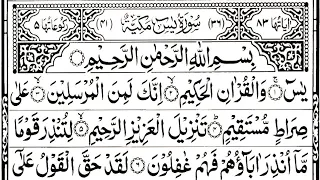 اٰیاتها ٨٣ (٣٦) سُوْرَةُ یٰسٓ مَكِّیَّةٌ (٤١) رکوعاتها ٥
بِسْمِ اللّٰهِ الرَّحْمٰنِ الرَّحِیْمِ
یٰسٓ ۚ۝١ وَالْقُرْاٰنِ الْحَكِیْمِ ۙ۝٢ اِنَّكَ لَمِنَ الْمُرْسَلِیْنَ ۙ۝٣ عَلٰی
صِرَاطٍ مُّسْتَقِیْمٍ ؕ۝٤ تَنْزِیْلَ الْعَزِیْزِ الرَّحِیْمِ ۙ۝٥ لِتُنْذِرَ قَوْمًا
مَّاۤ اُنْذِرَ اٰبَآؤُهُمْ فَهُمْ غٰفِلُوْنَ ۝٦ لَقَدْ حَقَّ الْقَوْلُ عَلٰۤی